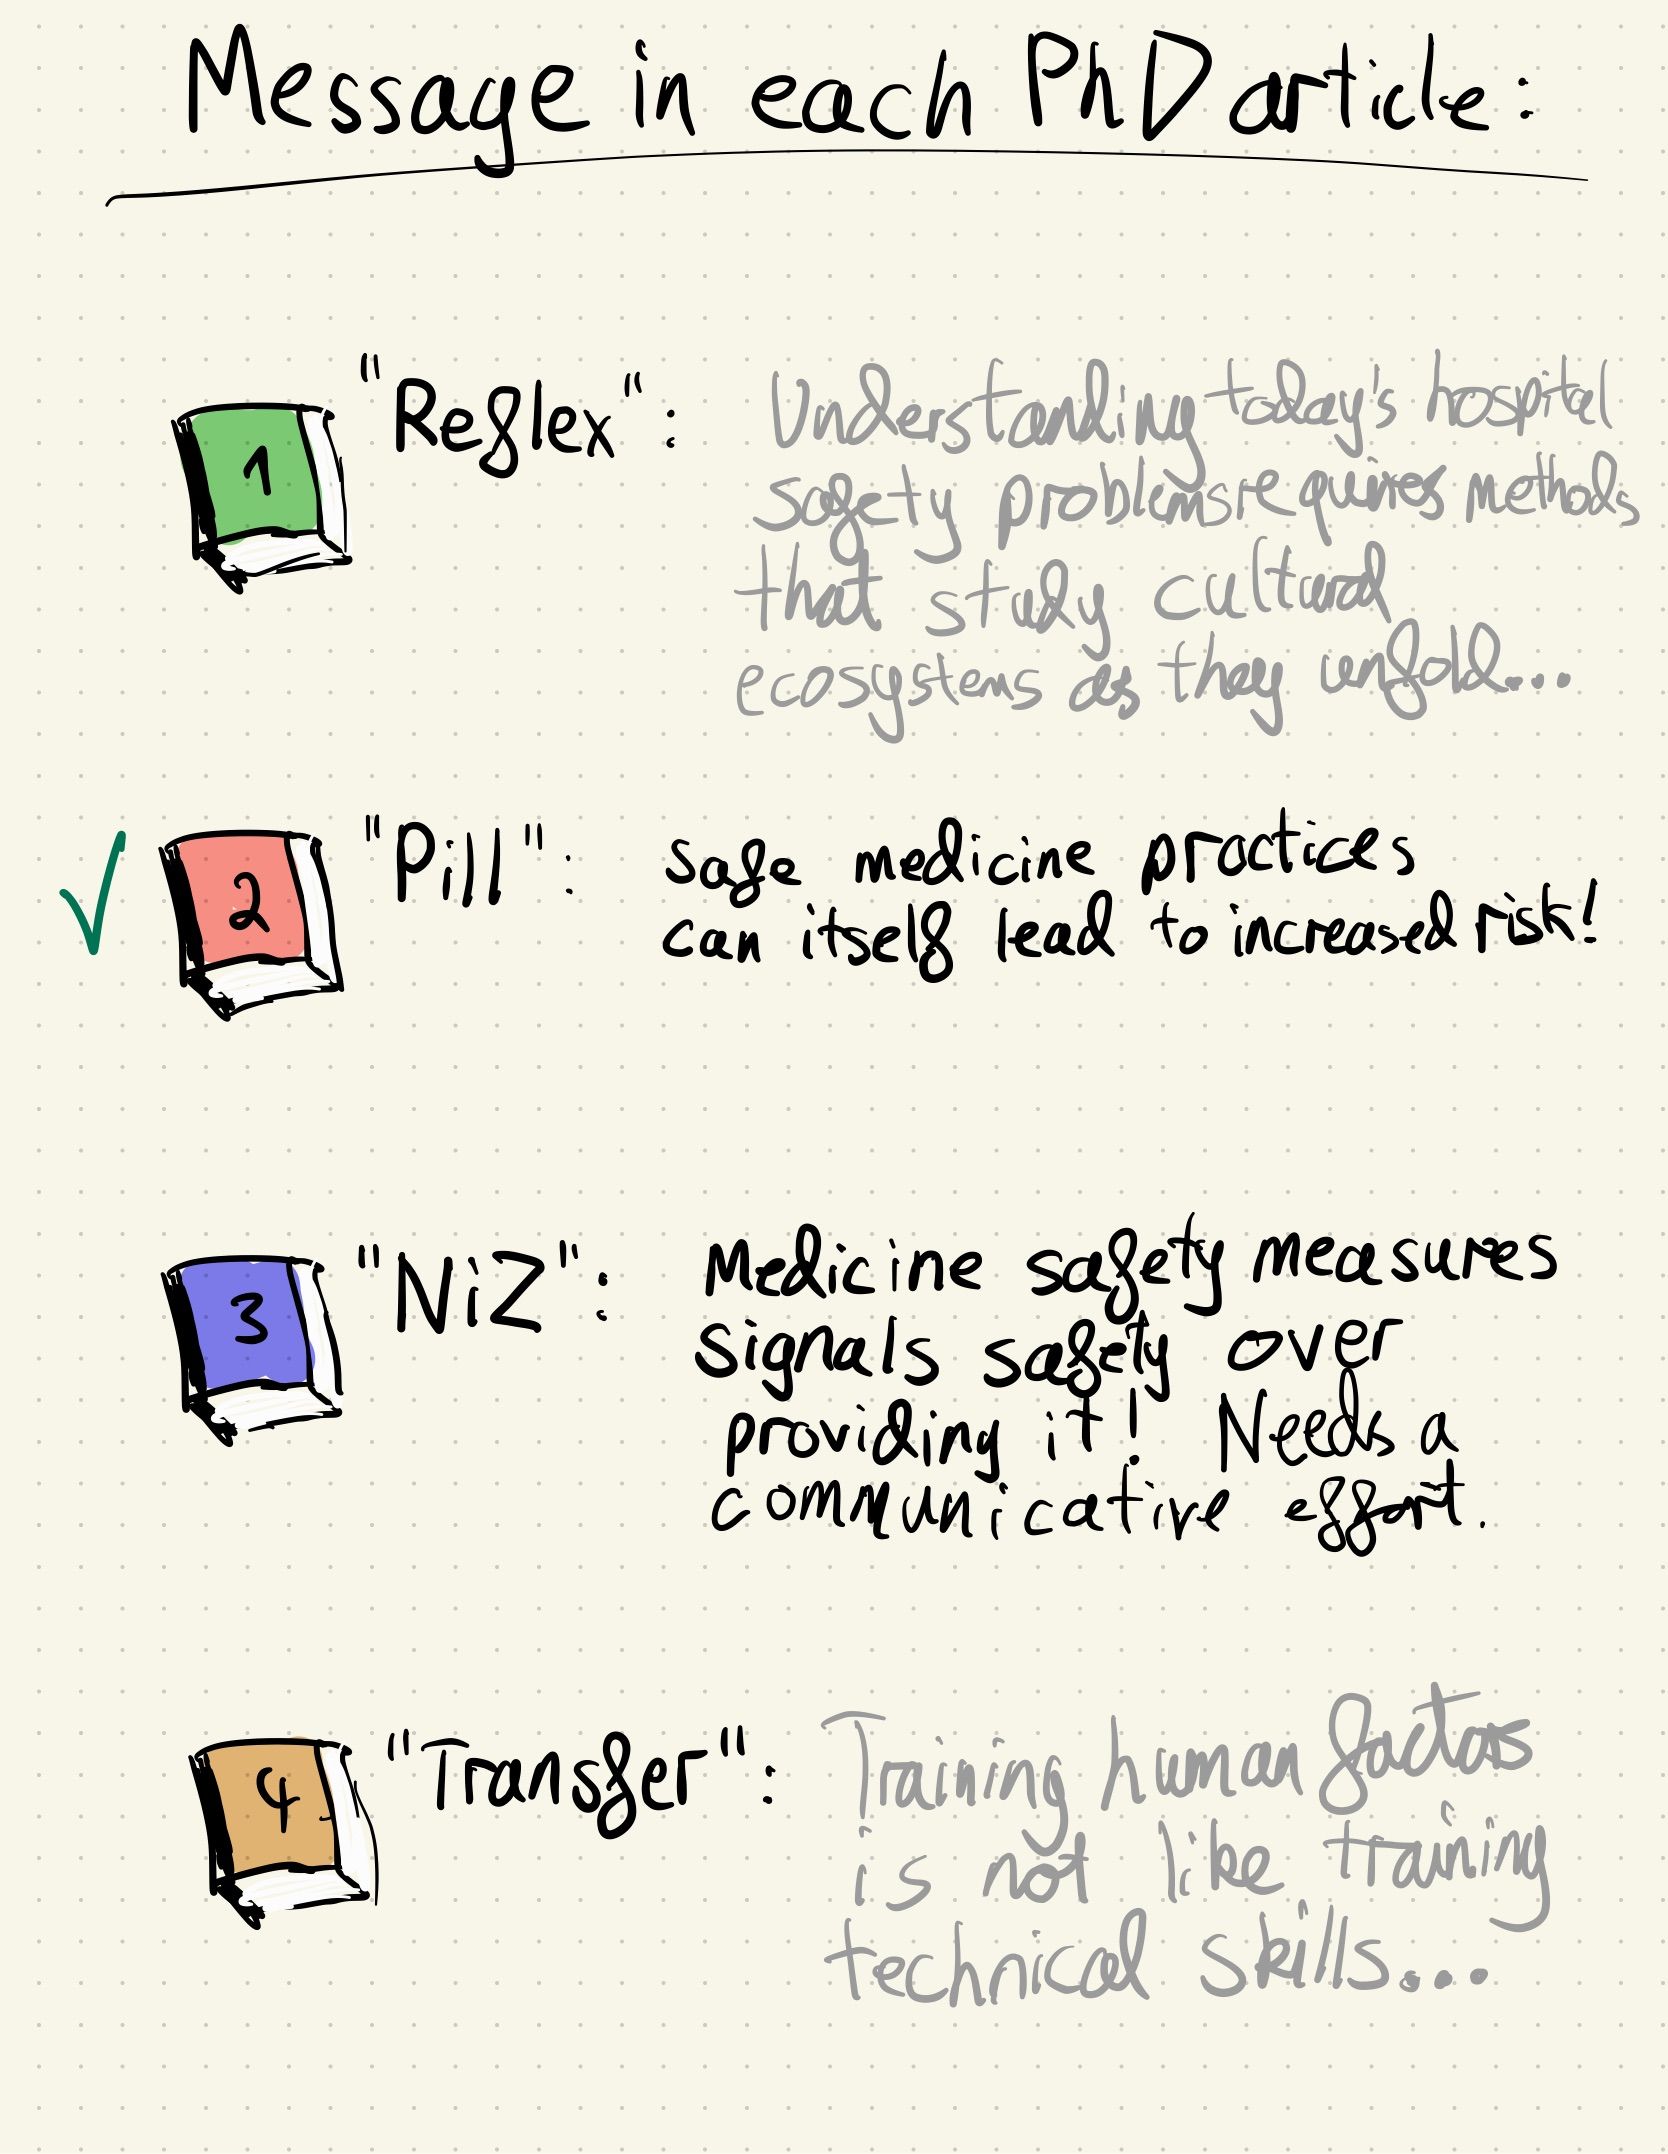 Message in each PhD article:
1
"Reflex":
Understanding today's hospital
safety problems requires methods
that study cultural
ecosystems as they unfold...
2
"Pill":
Safe medicine practices
can itself lead to increased risk!
3
"NiZ":
Medicine safety measures
signals safety over
providing it! Needs a
communicative effort.
4
"Transfer":
Training human factors
is not like training
technical skills...